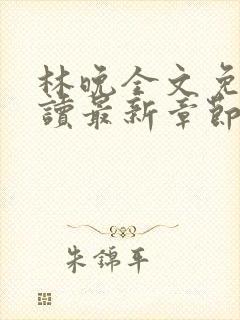 林晚全文免
讀最新章節
朱錦平